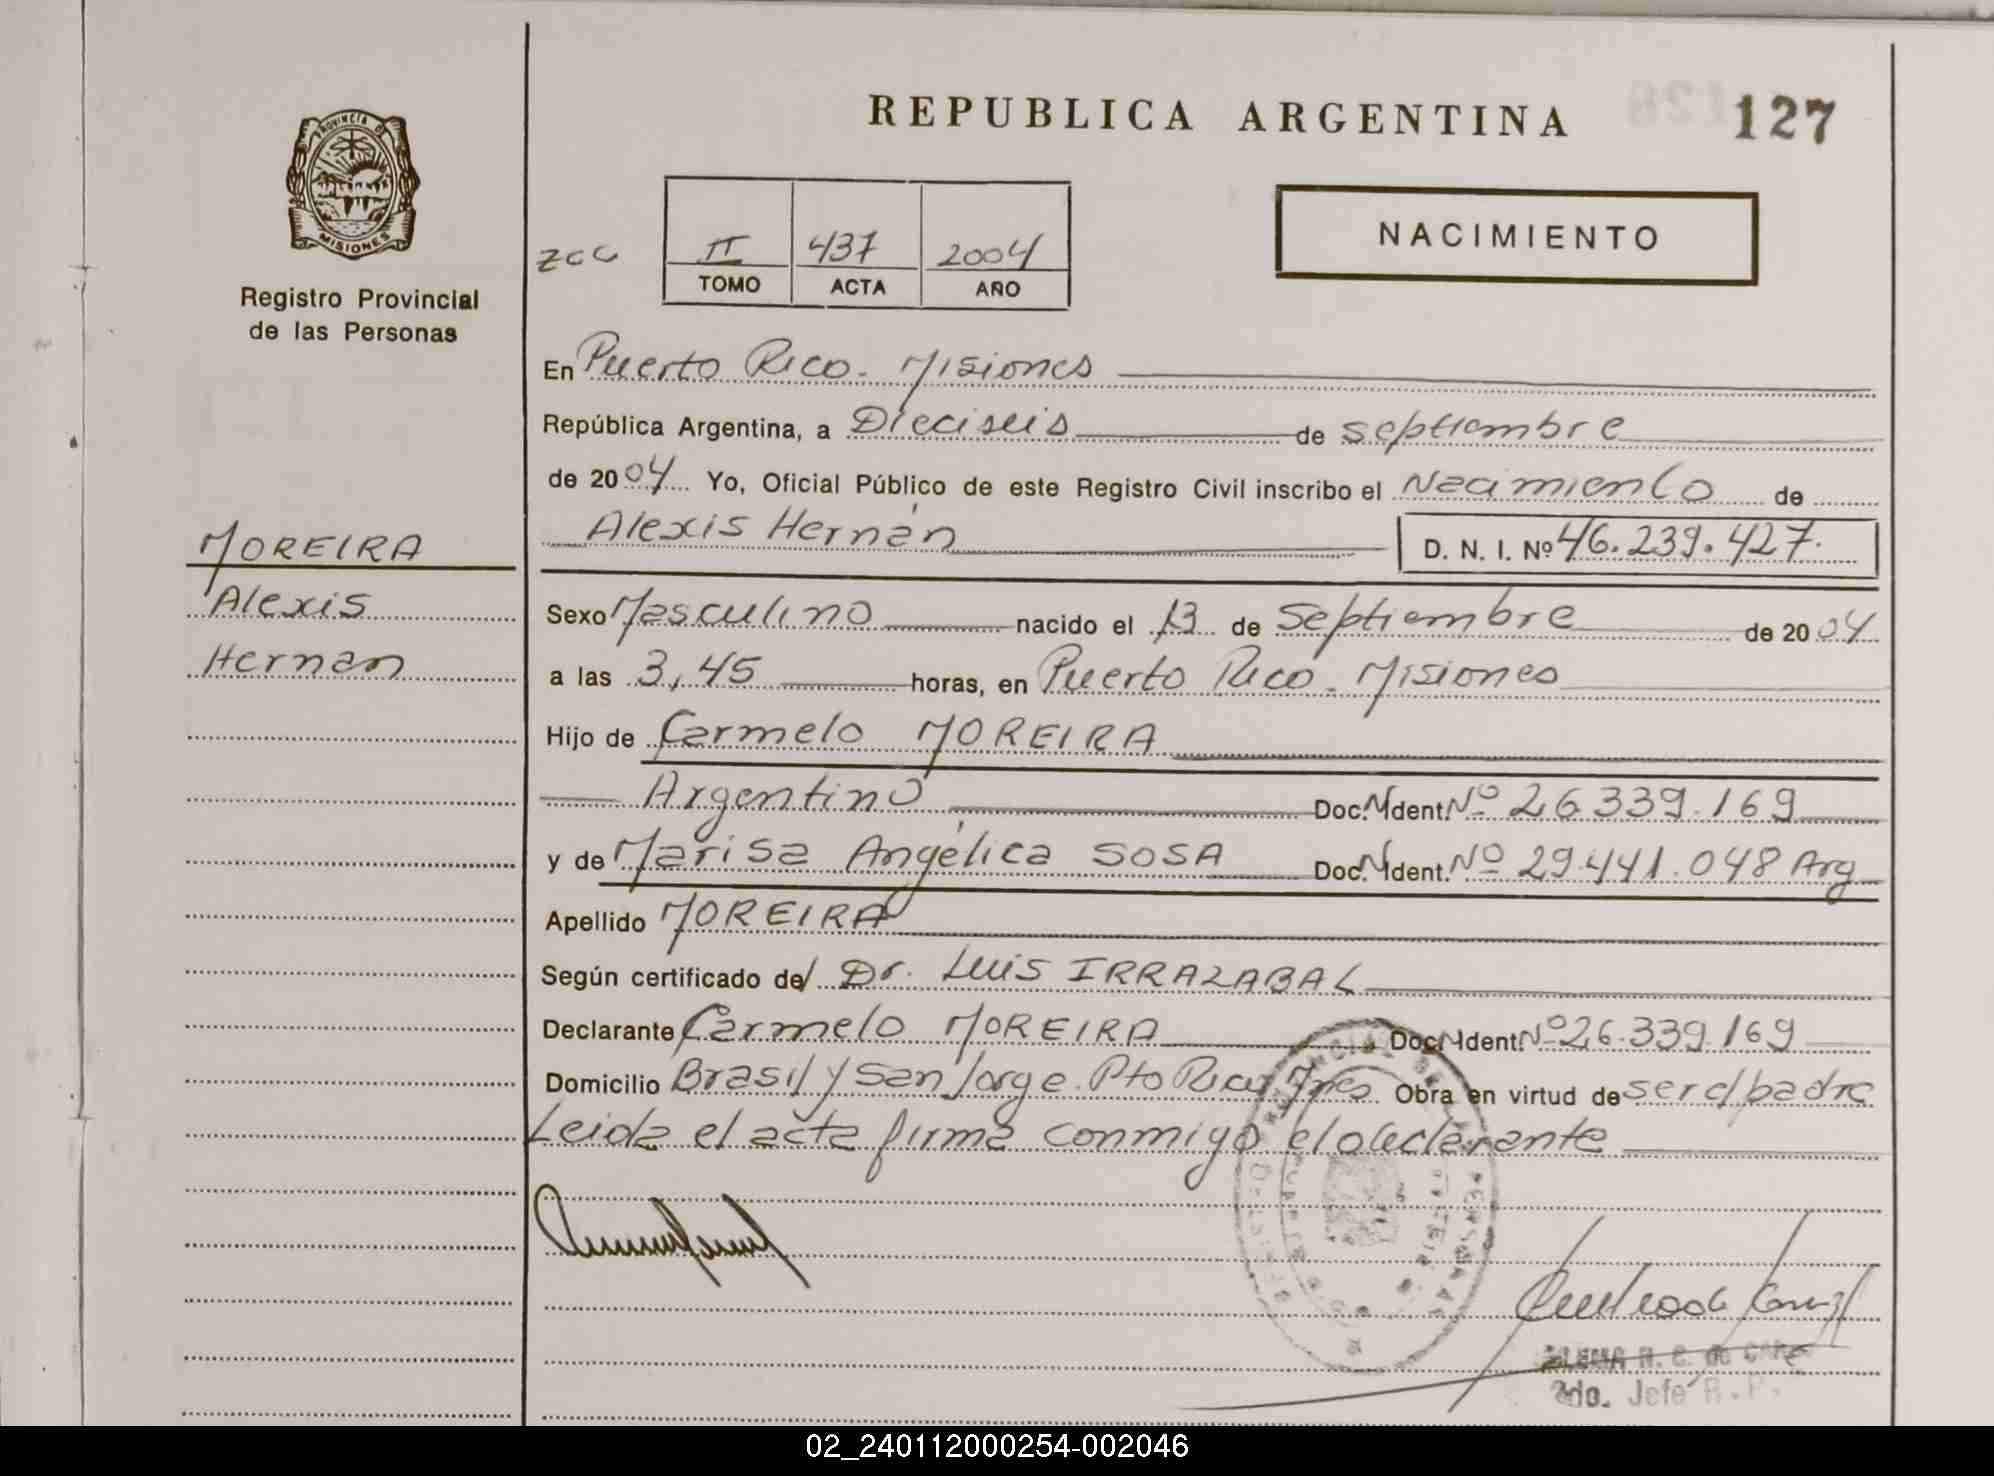 REPUBLICA ARGENTINA
127
PROVINCIA DE
MISIONES
Registro Provincial
de las Personas
NACIMIENTO
ZCC
II 437 2004
TOMO ACTA AÑO
En Puerto Rico. Misiones
República Argentina, a Dieciseis de septiembre
de 2004 Yo, Oficial Público de este Registro Civil inscribo el Nacimiento de
Alexis Hernán D. N. I. Nº 46.239.427.
MOREIRA
Alexis
Hernan
Sexo Masculino nacido el 13 de Septiembre de 2004
a las 3,45 horas, en Puerto Rico. Misiones
Hijo de Carmelo MOREIRA
Argentino Doc. N Ident. Nº 26.339.169
y de Marisa Angélica SOSA Doc. N Ident. Nº 29.441.048 Arg
Apellido MOREIRA
Según certificado del Dr. Luis IRRAZABAL
Declarante Carmelo MOREIRA Doc. N Ident. Nº 26.339.169
Domicilio Brasil y San Jorge. Pto Rico Mnes Obra en virtud de ser el padre
Leida el acta firma conmigo el declarante
2do. Jefe R. P.
02_240112000254-002046